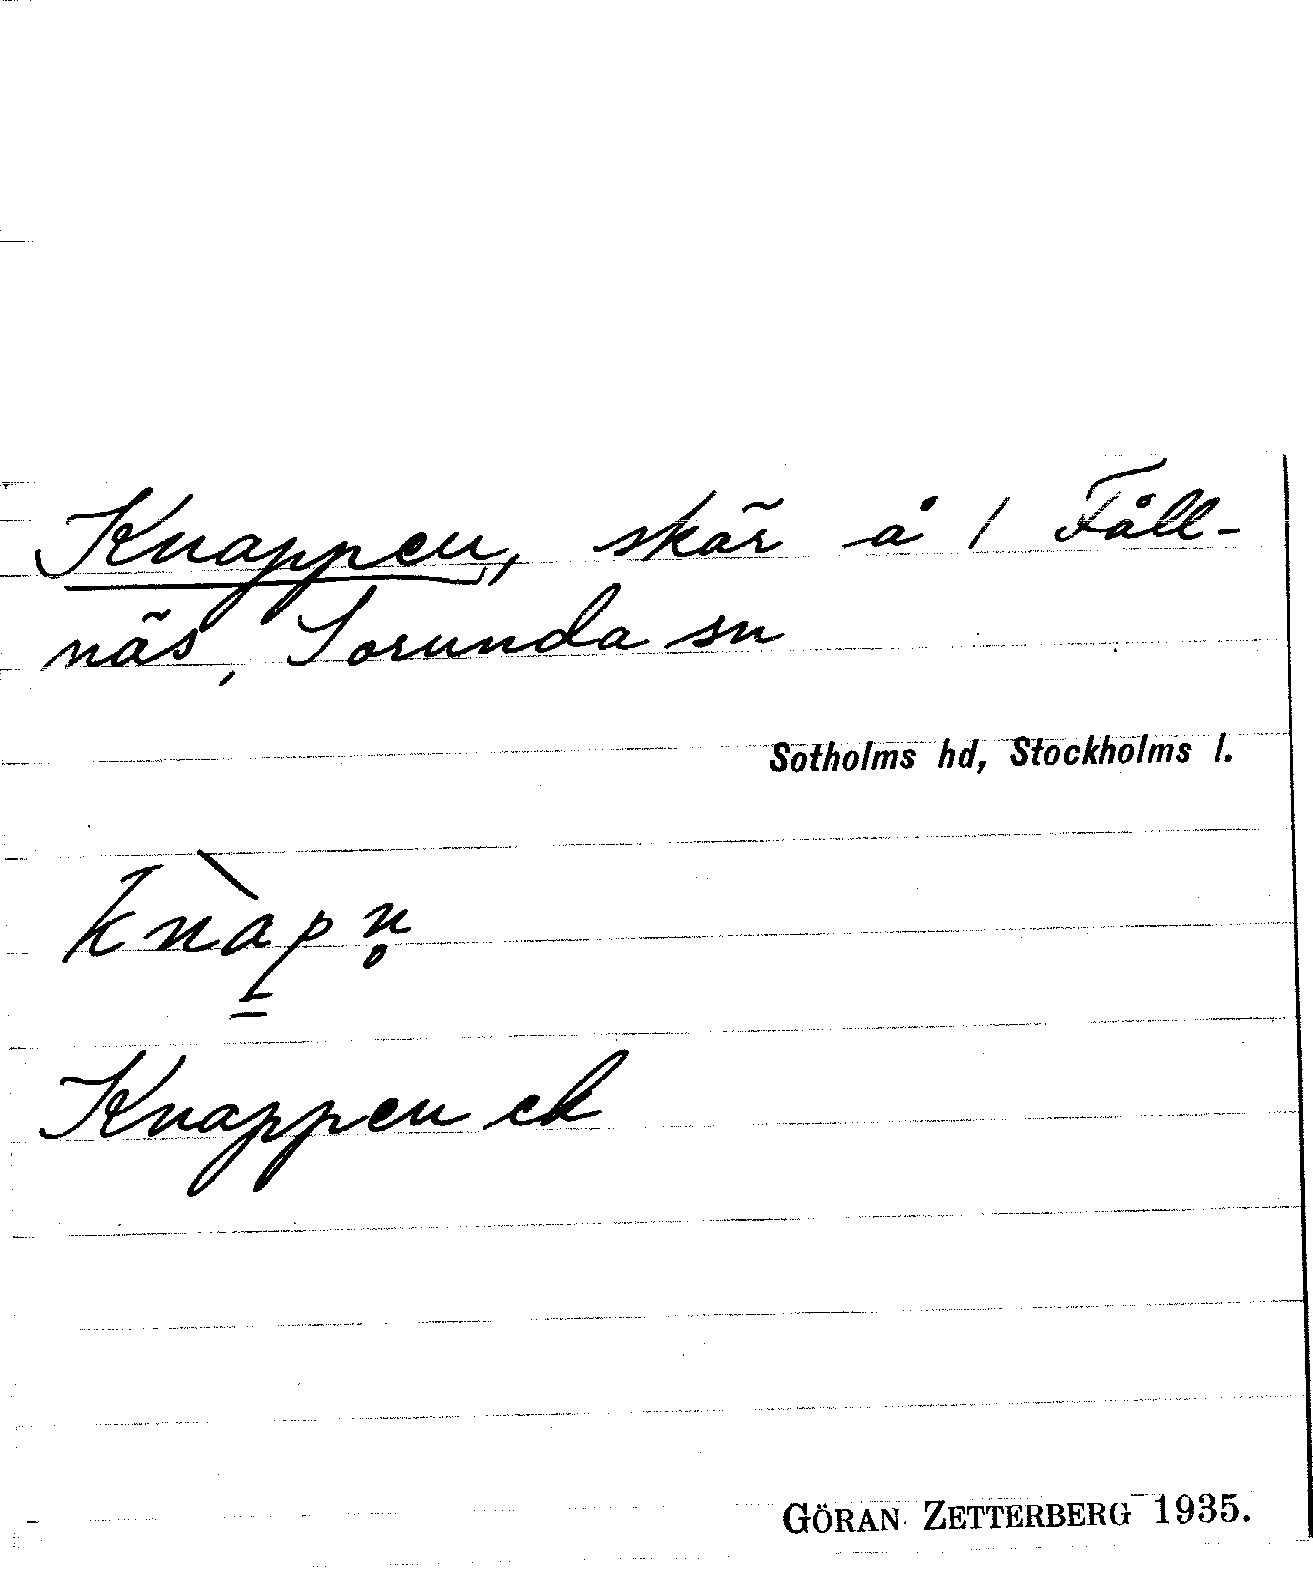 Knappen, skär å 1 Fåll-
näs, Sorunda sn
Sotholms hd, Stockholms l.
knàp̳n̥
Knappen ek
GÖRAN ZETTERBERG 1935.